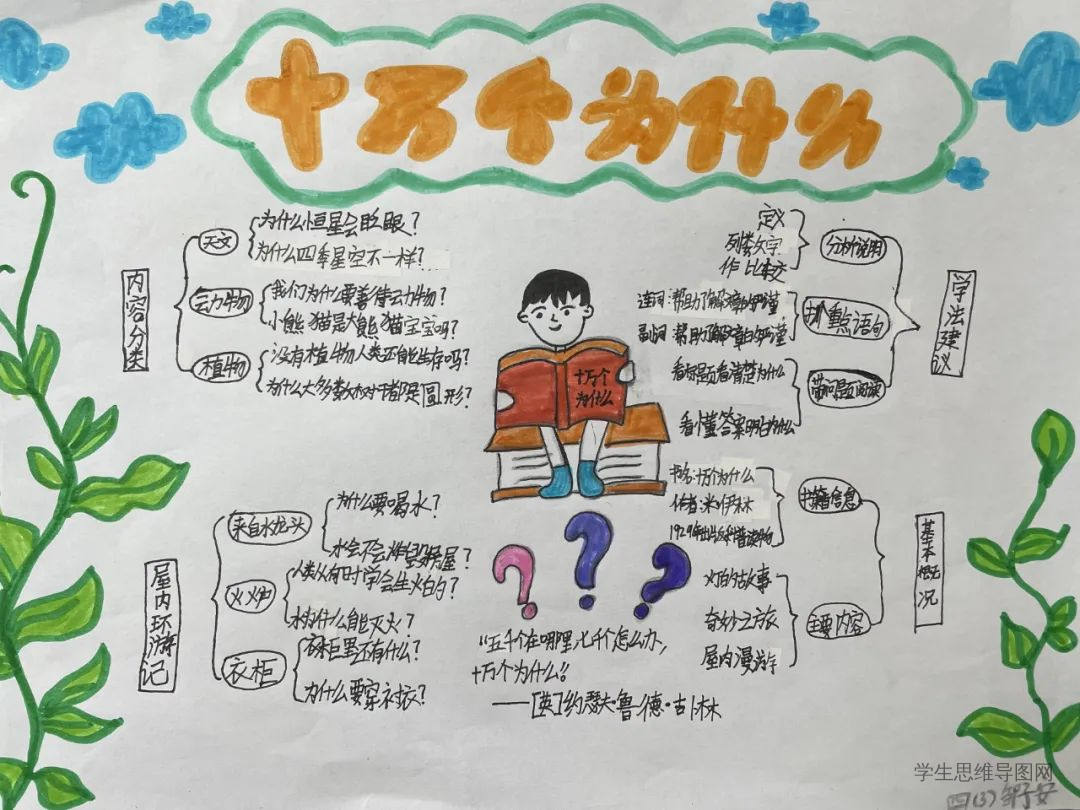 十万个为什么
内容分类
天文
为什么恒星会眨眼?
为什么四季星空不一样?
动物
我们为什么要善待动物?
小熊猫是大熊猫宝宝吗?
植物
没有植物人类还能生存吗?
为什么大多数树干都是圆形?
学法建议
分析说明
定义
列数字
作比较
抓重点语句
连词:帮助了解文章的严谨
副词 帮助了解文章的严谨
带问题阅读
看标题页看清楚为什么
看懂答案明白为什么
十万个
为什么
屋内环游记
来自水龙头
为什么要喝水?
水会不会炸毁房屋?
火炉
人类从何时学会生火的?
水为什么能灭火?
衣柜
衣柜里还有什么?
为什么要穿衬衣?
基本概况
书籍信息
书名:十万个为什么
作者:米伊林
1929年出版科普读物
主要内容
火的故事
奇妙之旅
屋内漫游
“五千个在哪里,七千个怎么办,
十万个为什么。”
——[英]约瑟夫·鲁德·吉卜林
学生思维导图网
四(3)